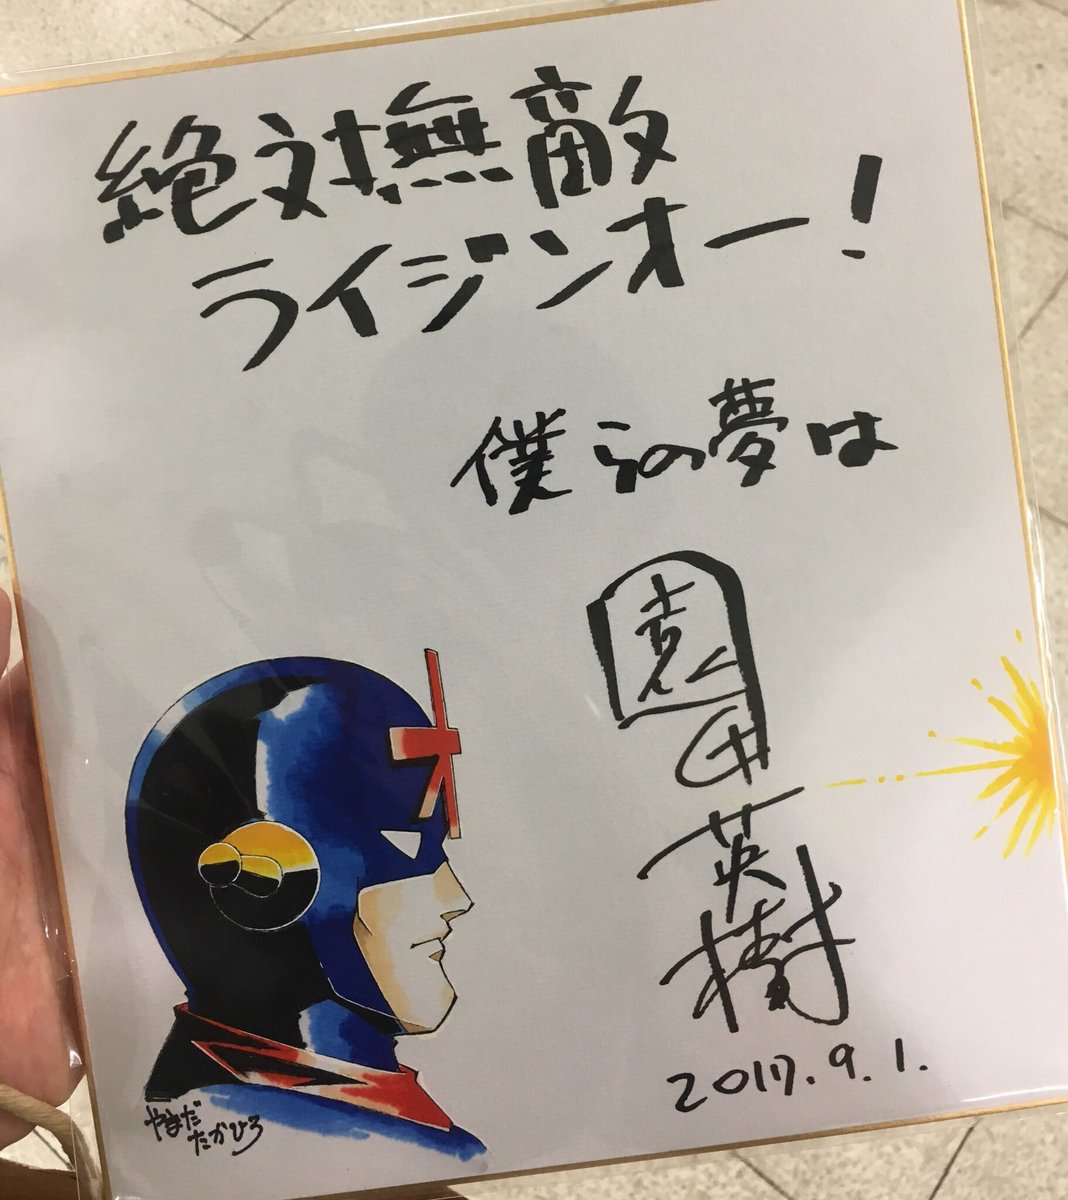 絶対無敵
ライジンオー!
僕らの夢は
園田
英樹
2017.9.1.
オ
やまだ
たかひろ